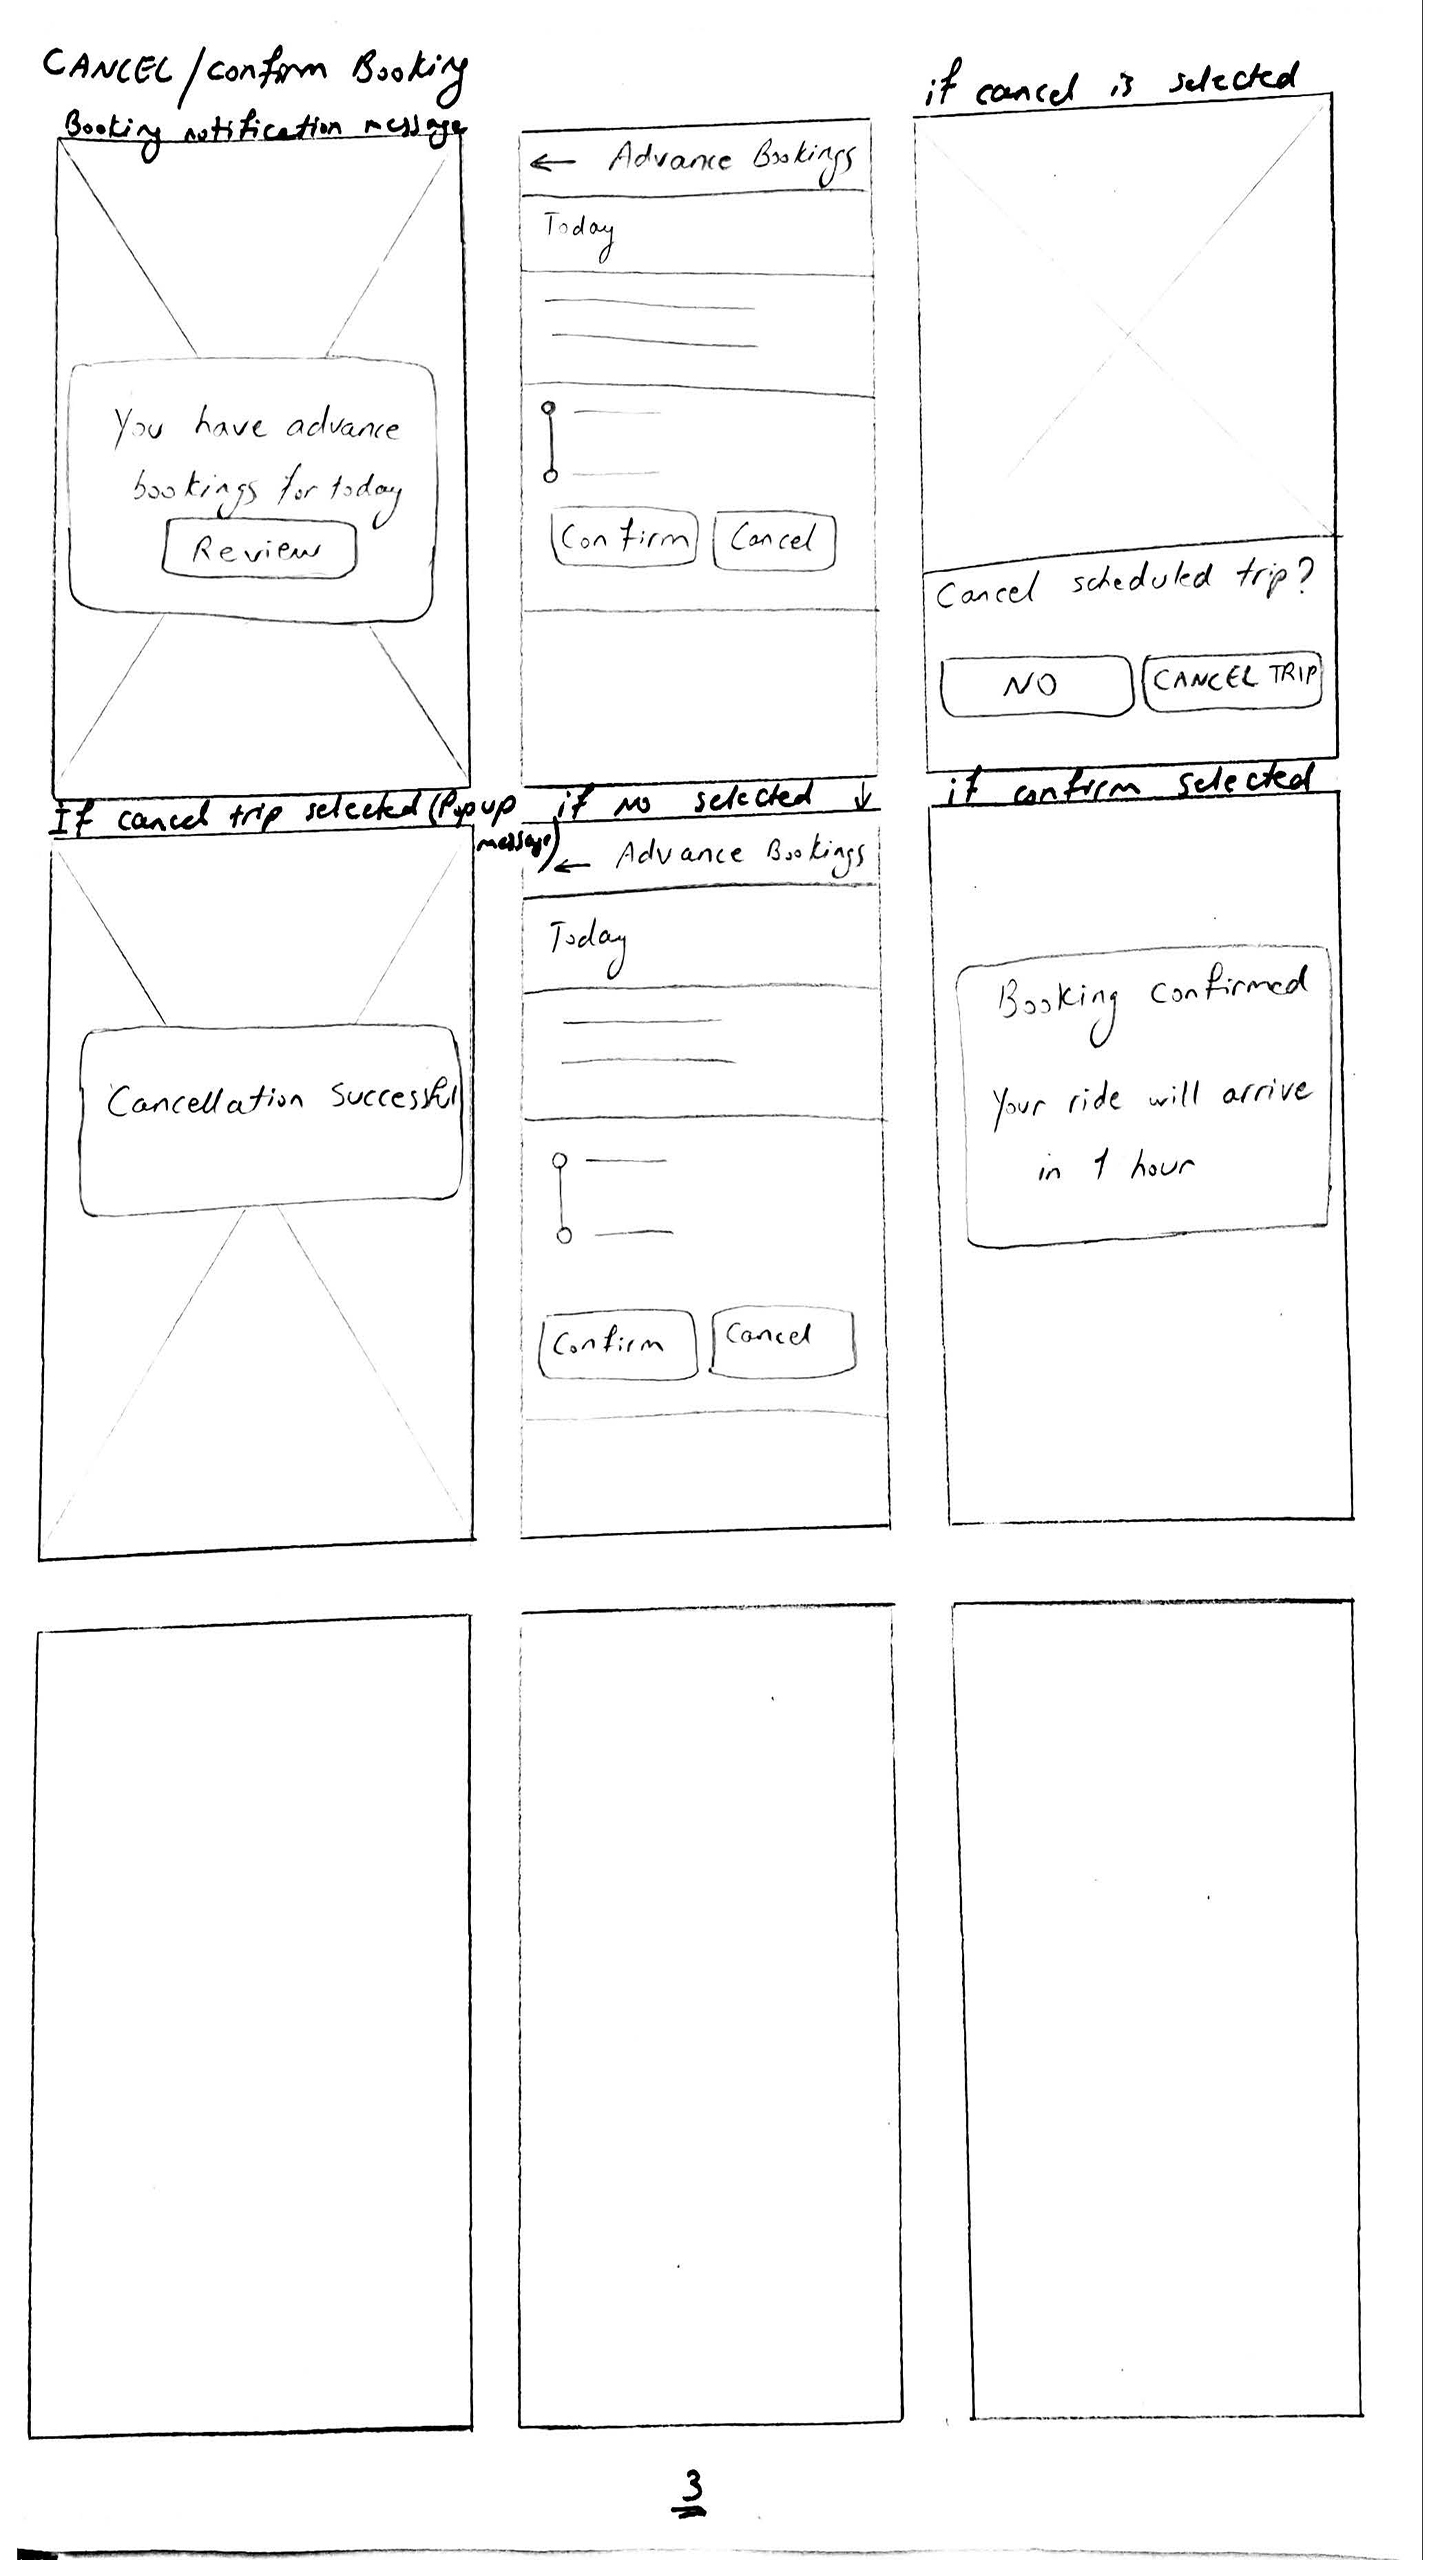 CANCEL/confirm Booking
Booking notification message
You have advance
bookings for today
Review
← Advance Bookings
Today
Confirm Cancel
if cancel is selected
Cancel scheduled trip?
NO CANCEL TRIP
If cancel trip selected (Pop up
message)
Cancellation Successful
if NO selected ↓
← Advance Bookings
Today
Confirm Cancel
if confirm selected
Booking confirmed
Your ride will arrive
in 1 hour
3